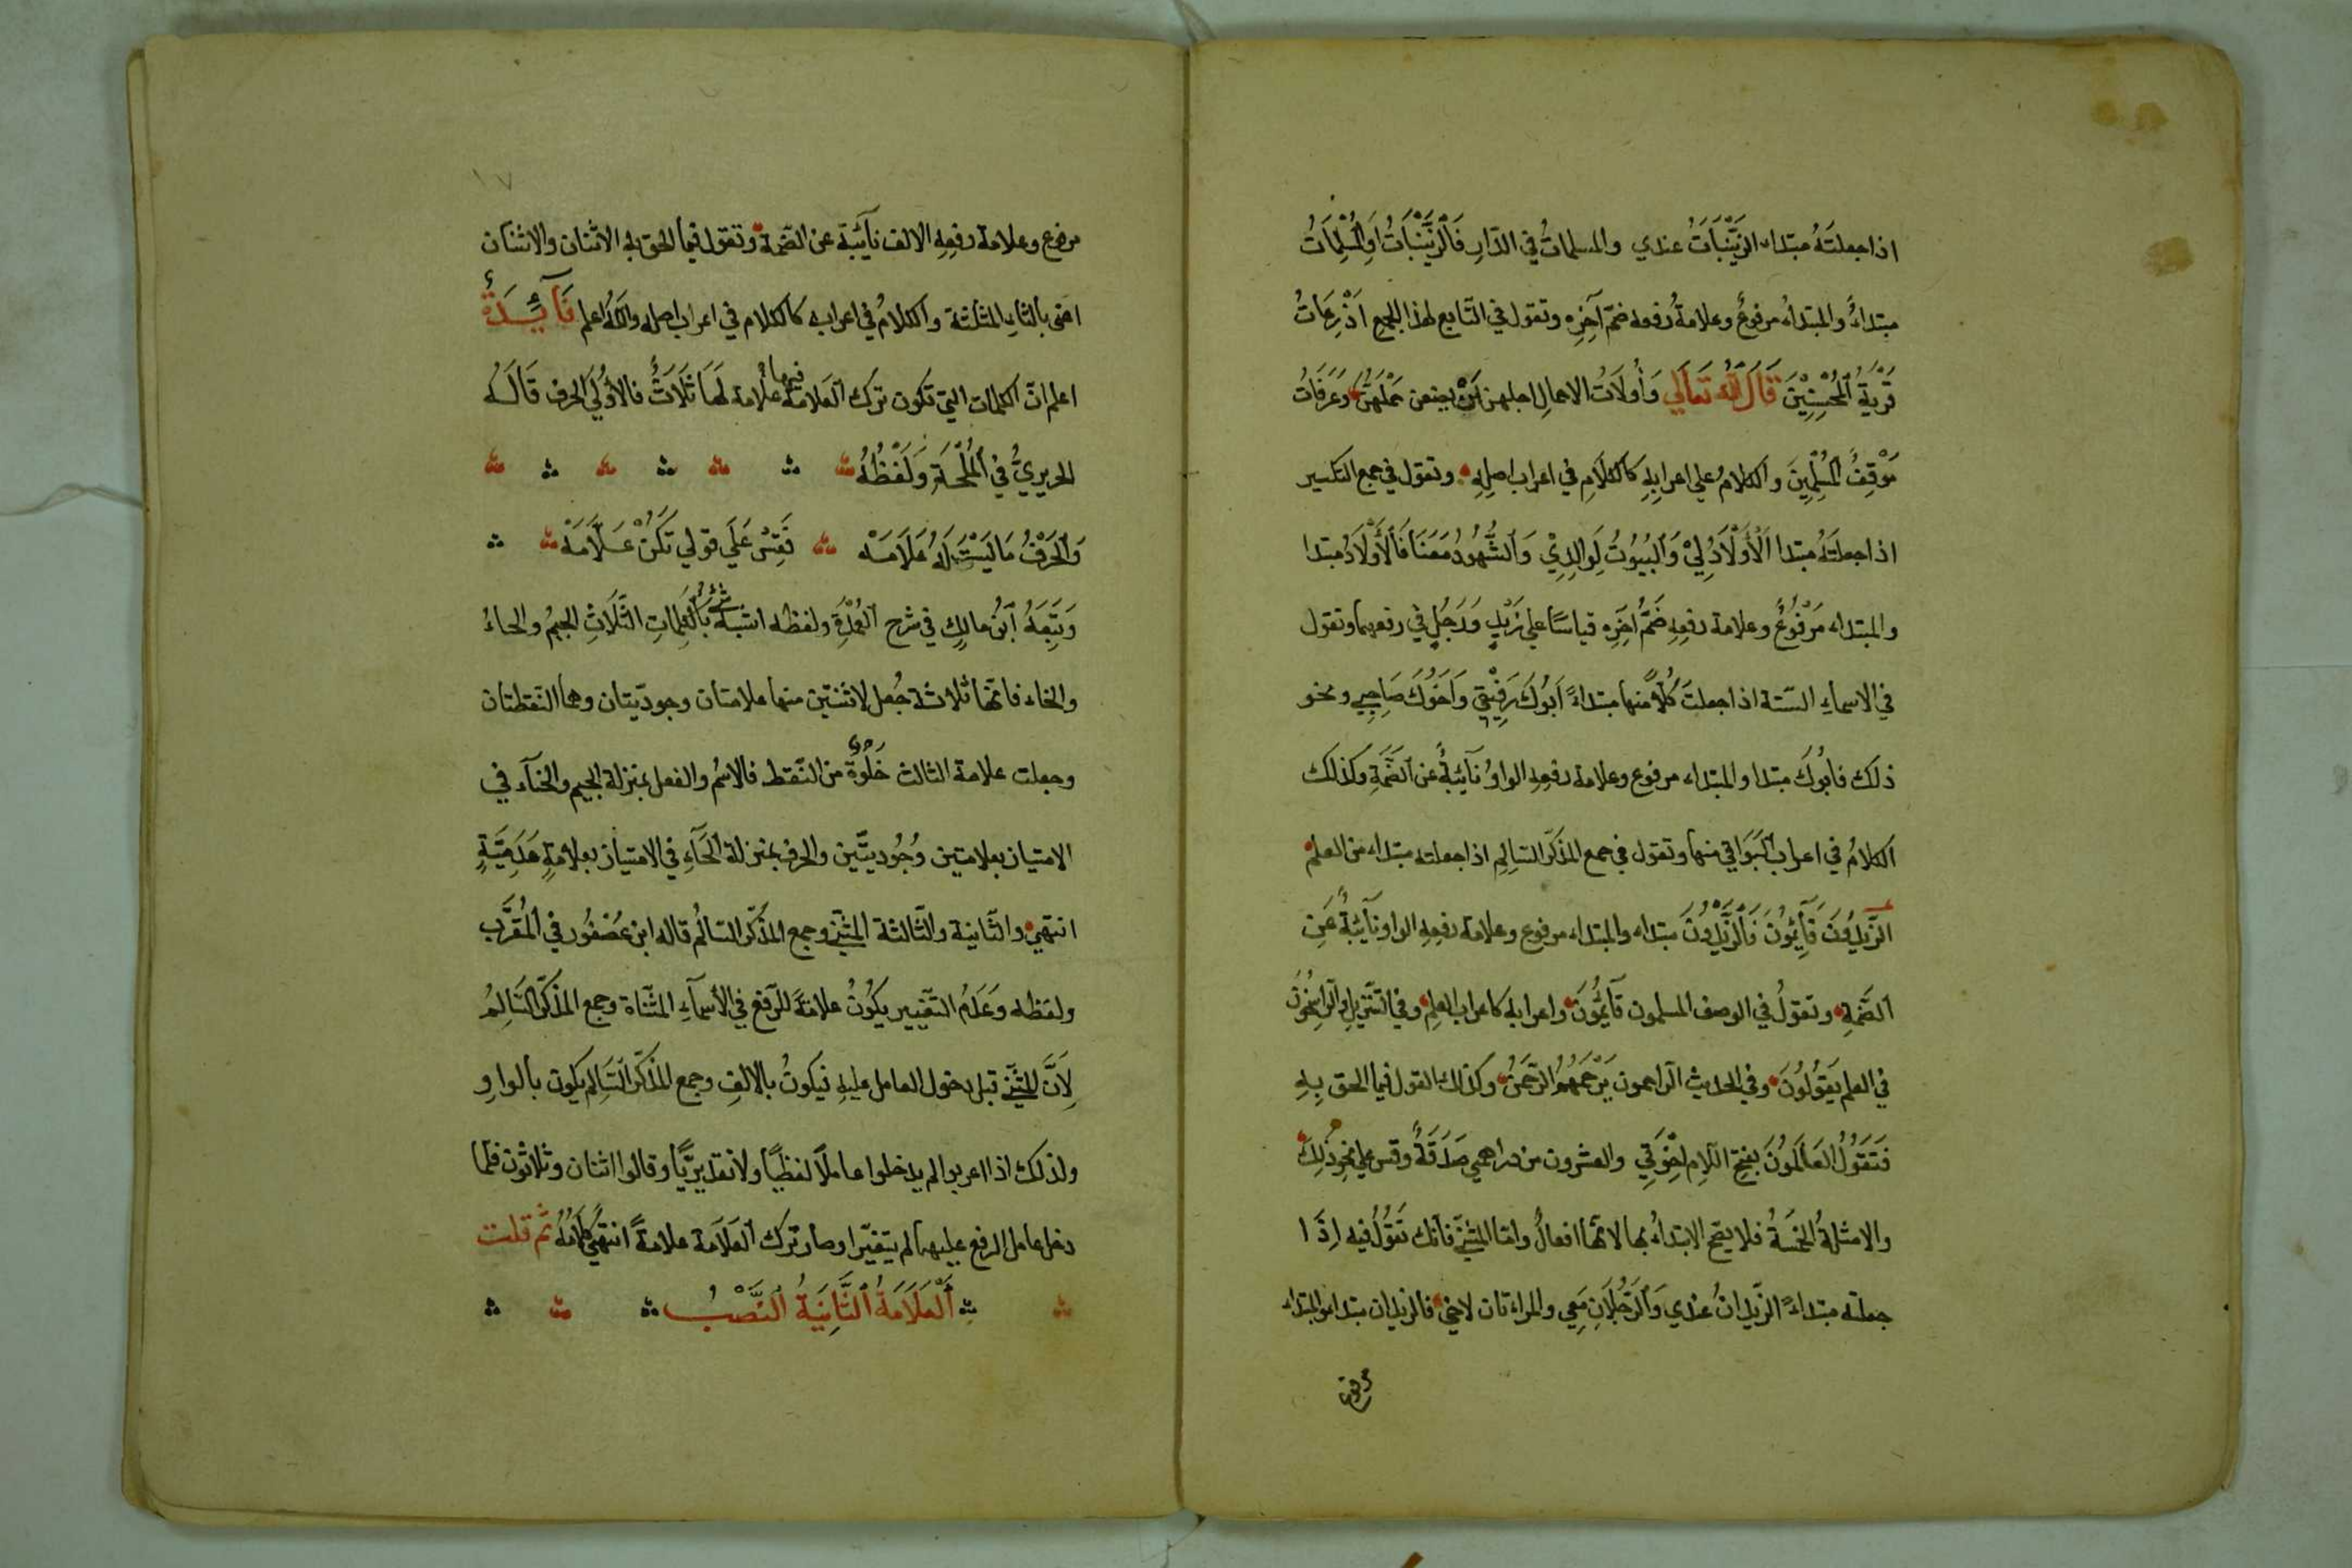 اذا جعلتَهُ مبتداء الزَّيْنَبَاتُ عندي والمسلماتُ في الدّارِ فَالزَّيْنَبَاتُ اوِالْمُسْلِمَاتُ
مبتداءٌ والمبتداءُ مرفوعٌ وعلامةُ رفعه ضمّ آخِرِه وتقول في التّابع لهذا الجمع اَذْرِعَاتُ
قَرْيَةُ الْمُحْسِنِيْنَ قَالَ اللّٰهُ تَعَالَي وَأُولَاتُ الاحمالِ اجلهن اَنْ يضعن حَمْلَهُنَّ وعَرَفَاتُ
مَوْقِفُ الْمُسْلِمِيْنَ والكلامُ علي اعرابِهِ كَالكَلَامِ في اعراب اصلِهِ وتقول في جمع التكسير
اذا جعلتَهُ مبتدا اَلْأَوْلَادُ لِيْ وَالْبُيُوْتُ لِوَالِدِيْ وَالشُّهُودُ مَعَنَا فَالْأَوْلَادُ مبتدا
والمبتداء مَرْفُوْعٌ وعلامة رفعِهِ ضَمُّ اٰخِرِهِ قياسًا علي زَيْدٍ وَرَجُلٍ في رفعهما وتقول
في الاسماءِ السّتة اذا جعلتَ كُلًّا منها مبتداءً اَبُوْكَ رَفِيْقِيْ وَاَخُوْكَ صَاحِبِي ونحو
ذلك فابُوكَ مبتدا والمبتداء مرفوع وعلامة رفعِهِ الواوُ نآئِبَةٌ عن الضَّمَّةِ وكذلك
الكلامُ في اعراب الْبَوَاقي منها وتقول في جمع المذكّر السّالِمِ اذا جعلته مبتداء من العلم
الزَّيْدُوْنَ قَآئِمُوْنَ فَالزَّيْدُوْنَ مبتداء والمبتداء مرفوع وعلامة رفعِهِ الواو نآئِبَةٌ عَنِ
الضَّمّةِ وتقولُ في الوصف المسلمون قآئِمُوْنَ واعرابه كاعراب العلم وفي التَّنْزِيلِ والرّاسِخُوْنَ
في العلم يَقُوْلُوْنَ وفي الحديث الرّاحمون يَرْحَمُهُمُ الرَّحْمٰنُ وكذلك القول فيما الحق بِهِ
فَتَقُوْلُ العَالَمُوْنَ بفتح اللّامِ اِخْوَتِي والعشرون من دراهمي صَدَقَةٌ وقس علي نحو ذٰلِكَ
والامثلةُ الخمسَةُ فلا يصحّ الابتداءُ بها لانّها افعالٌ وامّا المثنّي فانّك تَقُوْلُ فيه اِذَا
جعلته مبتداءً الزّيدانُ عندي وَالرَّجُلَانِ مَعِي والمراءتان لاخي فالزيدان مبتداء والمبتداء
مرفوع
١٧
مرفوع وعلامة رفعِهِ الالف نآئبة عن الضّمة وتقول فيما الحق به الاثنان والاثنتان
اعني بالثاءِ المثلثة والكلامُ في اعرابه كالكلام في اعراب اصله واللّٰه اعلم فَآئِدَةٌ
اعلم انّ الكلمات التي تكون ترك العَلامَة فيها علامة لَهَا ثَلَاثٌ فالأوْلَي الحرف قَالَهُ
الحريريُّ في الْمُلْحَةِ وَلَفْظُهُ
وَالْحَرْفُ مَا لَيْسَتْ لَهُ عَلَامَهْ فَقِسْ عَلَي قَوْلي تَكُنْ عَلَّامَهْ
وَتَبِعَهُ ابْنُ مالكٍ في شرح الْعُمْدَةِ ولفظه اشبه شيء بالكَلِمَاتِ الثَّلَاثِ الجيمُ والحاءُ
والخاء فانّها ثلاثة جُعل لاثنتين منها علامتان وجوديّتان وهما النقطتان
وجعلت علامة الثالث خُلُوَّهُ من النّقط فالاسْمُ والفعل بمنزلة الجيم والخآء في
الامتياز بعلامتين وُجُوديّتين والحرف بمنزلة الْحَآءِ في الامتياز بعلامةٍ عَدَمِيَّةٍ
انتهي والثّانية والثّالثة المثنّي وجمع المذكّر السّالمُ قاله ابن عُصْفُور في الْمُقَرَّب
ولفظه وَعَدَمُ التّغيير يكُوْنُ علامَةً للرَّفع في الأسمآءِ المثنّاة وجمع المذكّر السّالِمُ
لِاَنَّ المثنّي قبل دخول العامل عليهِ فيكونُ بالالفِ وجمع المذكّر السّالم يكون بالواوِ
ولذلك اذا اعربوا لم يدخلوا عاملًا لفظيًّا ولا تقديريًّا وقالوا اثنان وثلاثون فلما
دخل عامل الرفع عليهما لم يتغيّرا وصار ترك العَلَامَة علامةً انتهيٰ كَلَامُهُ ثم قلت
اَلْعَلَامَةُ الثَّانِيَةُ النَّصْبُ